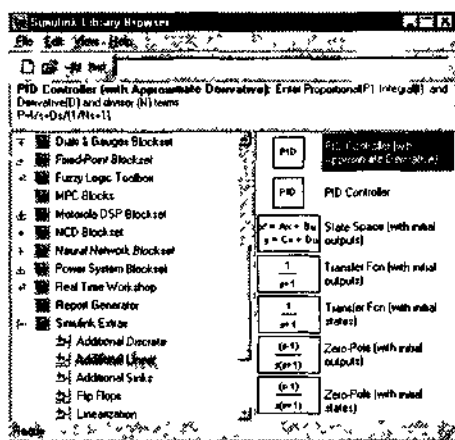 Simulink Library Browser
File Edit View Help
PID Controller (with Approximate Derivative): Enter Proportional(P), Integral(I), and
Derivative(D) and divisor (N) terms
P+I/s+Ds/(1/Ns+1)
Dials & Gauges Blockset
Fixed-Point Blockset
Fuzzy Logic Toolbox
MPC Blocks
Motorola DSP Blockset
NCD Blockset
Neural Network Blockset
Power System Blockset
Real Time Workshop
Report Generator
Simulink Extras
Additional Discrete
Additional Linear
Additional Sinks
Flip Flops
Linearization
PID
PID Controller (with
Approximate Derivative)
PID
PID Controller
x' = Ax + Bu
y = Cx + Du
State Space (with initial
outputs)
1
s+1
Transfer Fcn (with initial
outputs)
1
s+1
Transfer Fcn (with initial
states)
(s-1)
s(s+1)
Zero-Pole (with initial
outputs)
(s-1)
s(s+1)
Zero-Pole (with initial
states)
Ready